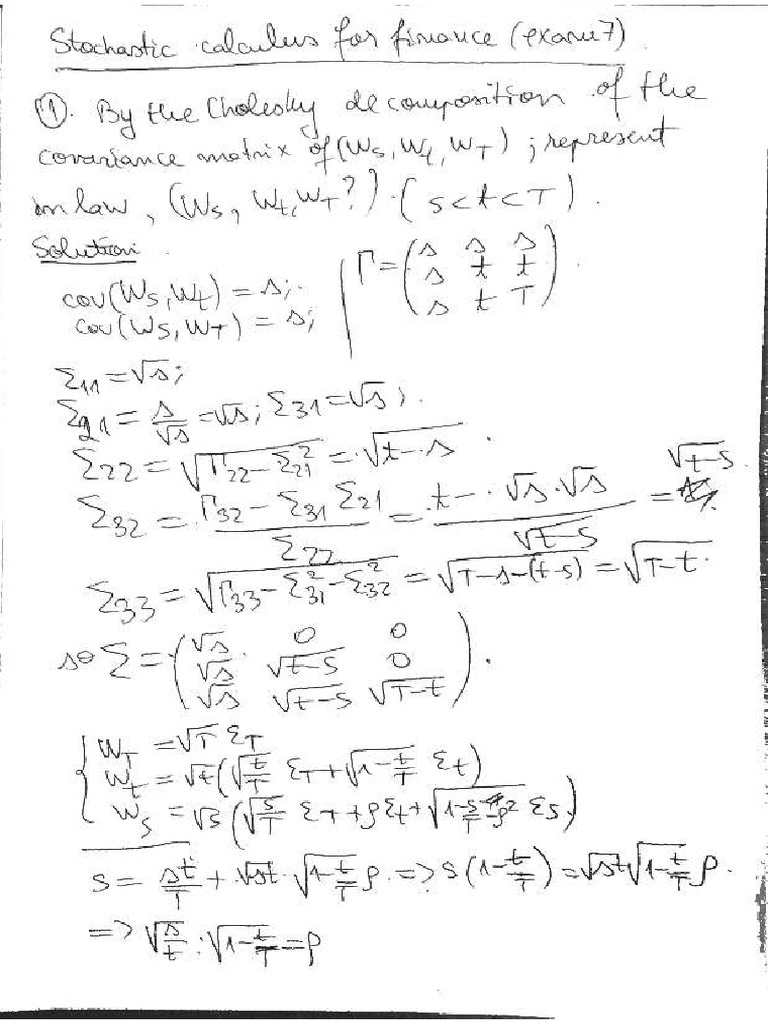 Stochastic calculus for finance (exam 7)
①. By the Cholesky decomposition of the
covariance matrix of (Ws, Wt, WT); represent
in law, (Ws, Wt, WT?). (s<t<T).
Solution
cov(Ws, Wt) = s;
cov(Ws, WT) = s;
Γ = ( s s s
s t t
s t T ).
Σ11 = √s;
Σ21 = s/√s = √s; Σ31 = √s).
Σ22 = √(Γ22 - Σ21²) = √(t-s).
Σ32 = (Γ32 - Σ31 Σ21)/Σ22 = (t - √s.√s)/√(t-s) = √(t-s).
Σ33 = √(Γ33 - Σ31² - Σ32²) = √(T-s-(t-s)) = √(T-t).
so Σ = ( √s 0 0
√s √(t-s) 0
√s √(t-s) √(T-t) ).
WT = √T ΣT
Wt = √t (√(t/T) ΣT + √(1-t/T) Σt)
Ws = √s (√(s/T) ΣT + ρΣt + √(1-s/T-ρ²) Σs)
s = st/T + √st . √(1-t/T) ρ. => s(1-t/T) = √st √(1-t/T) ρ.
=> √(s/t) . √(1-t/T) = ρ